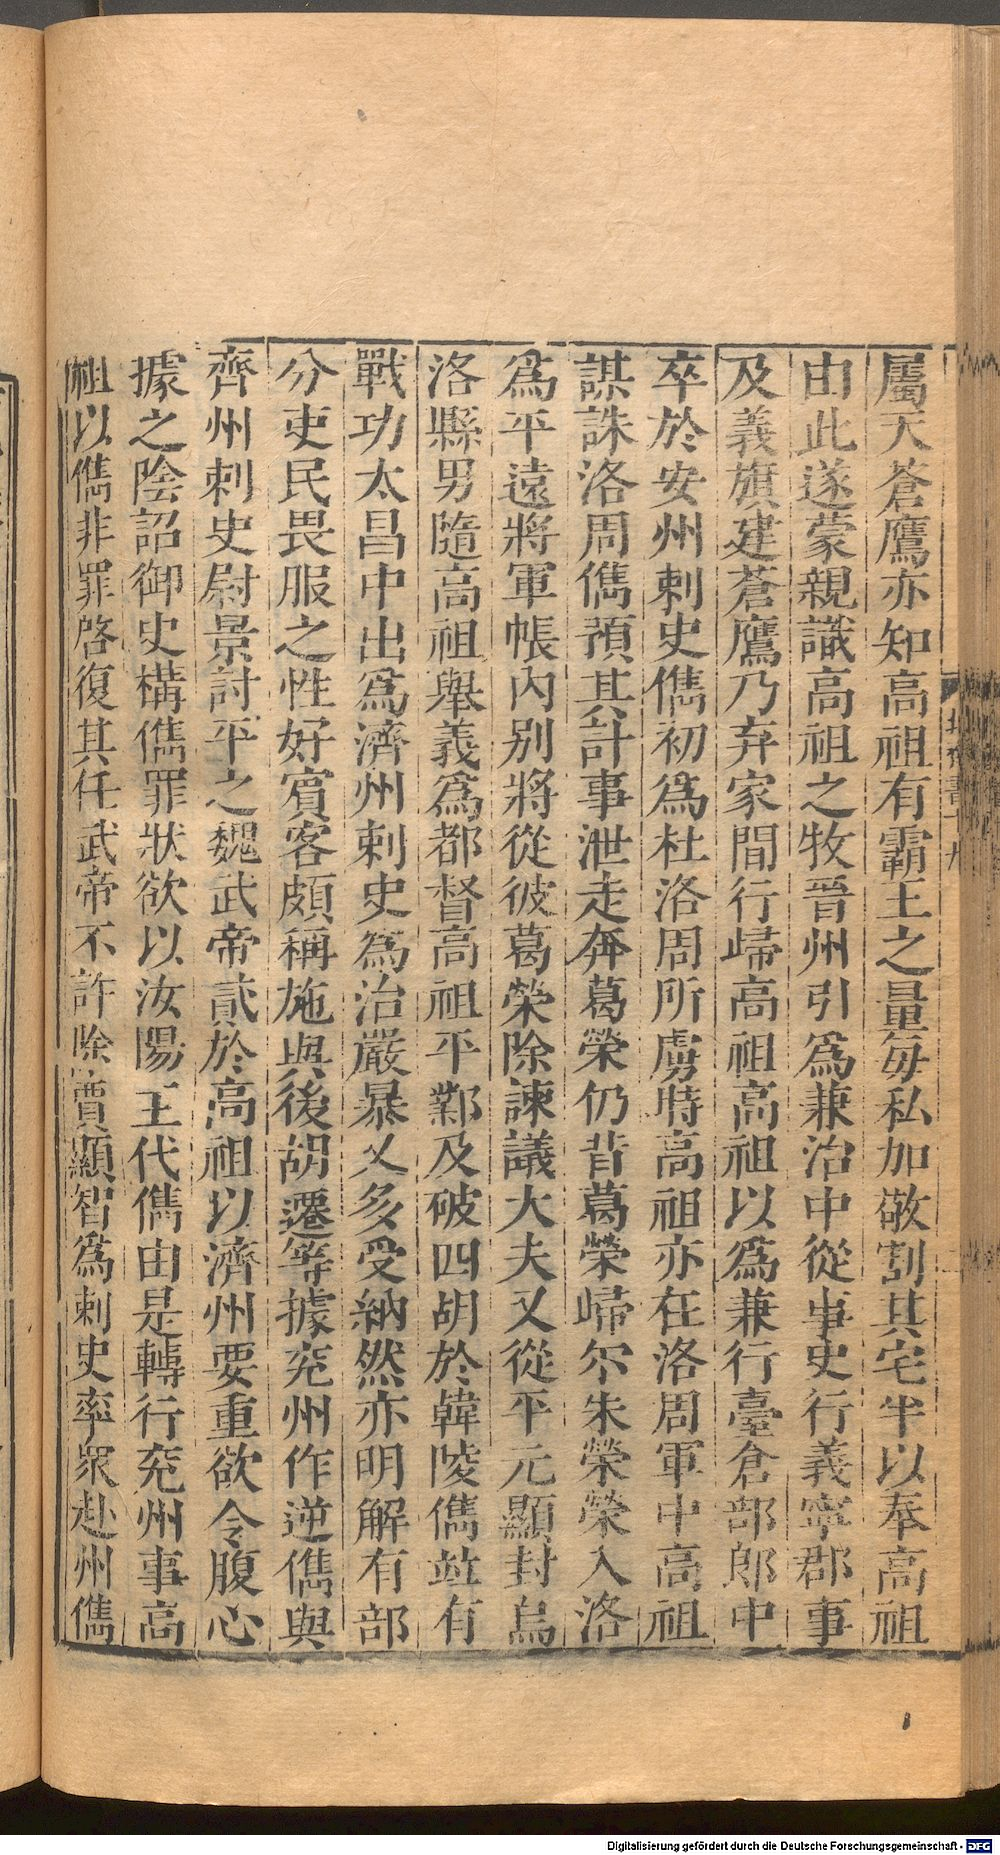 屬天蒼鷹亦知高祖有霸王之量每私加敬割其宅半以奉高祖
由此遂蒙親識高祖之牧晉州引爲兼治中從事史行義寧郡事
及義旗建蒼鷹乃弃家間行歸高祖高祖以爲兼行臺倉部郎中
卒於安州刺史儁初爲杜洛周所虜時高祖亦在洛周軍中高祖
謀誅洛周儁預其計事泄走奔葛榮仍背葛榮歸尔朱榮榮入洛
爲平遠將軍帳內别將從彼葛榮除諫議大夫又從平元顥封烏
洛縣男隨高祖舉義爲都督高祖平鄴及破四胡於韓陵儁竝有
戰功太昌中出爲濟州刺史爲治嚴暴又多受納然亦明解有部
分吏民畏服之性好賓客頗稱施與後胡遷等據兖州作逆儁與
齊州刺史尉景討平之魏武帝貳於高祖以濟州要重欲令腹心
據之陰詔御史構儁罪狀欲以汝陽王代儁由是轉行兖州事高
祖以儁非罪啓復其任武帝不許除賈顯智爲刺史率衆赴州儁
Digitalisierung gefördert durch die Deutsche Forschungsgemeinschaft - DFG